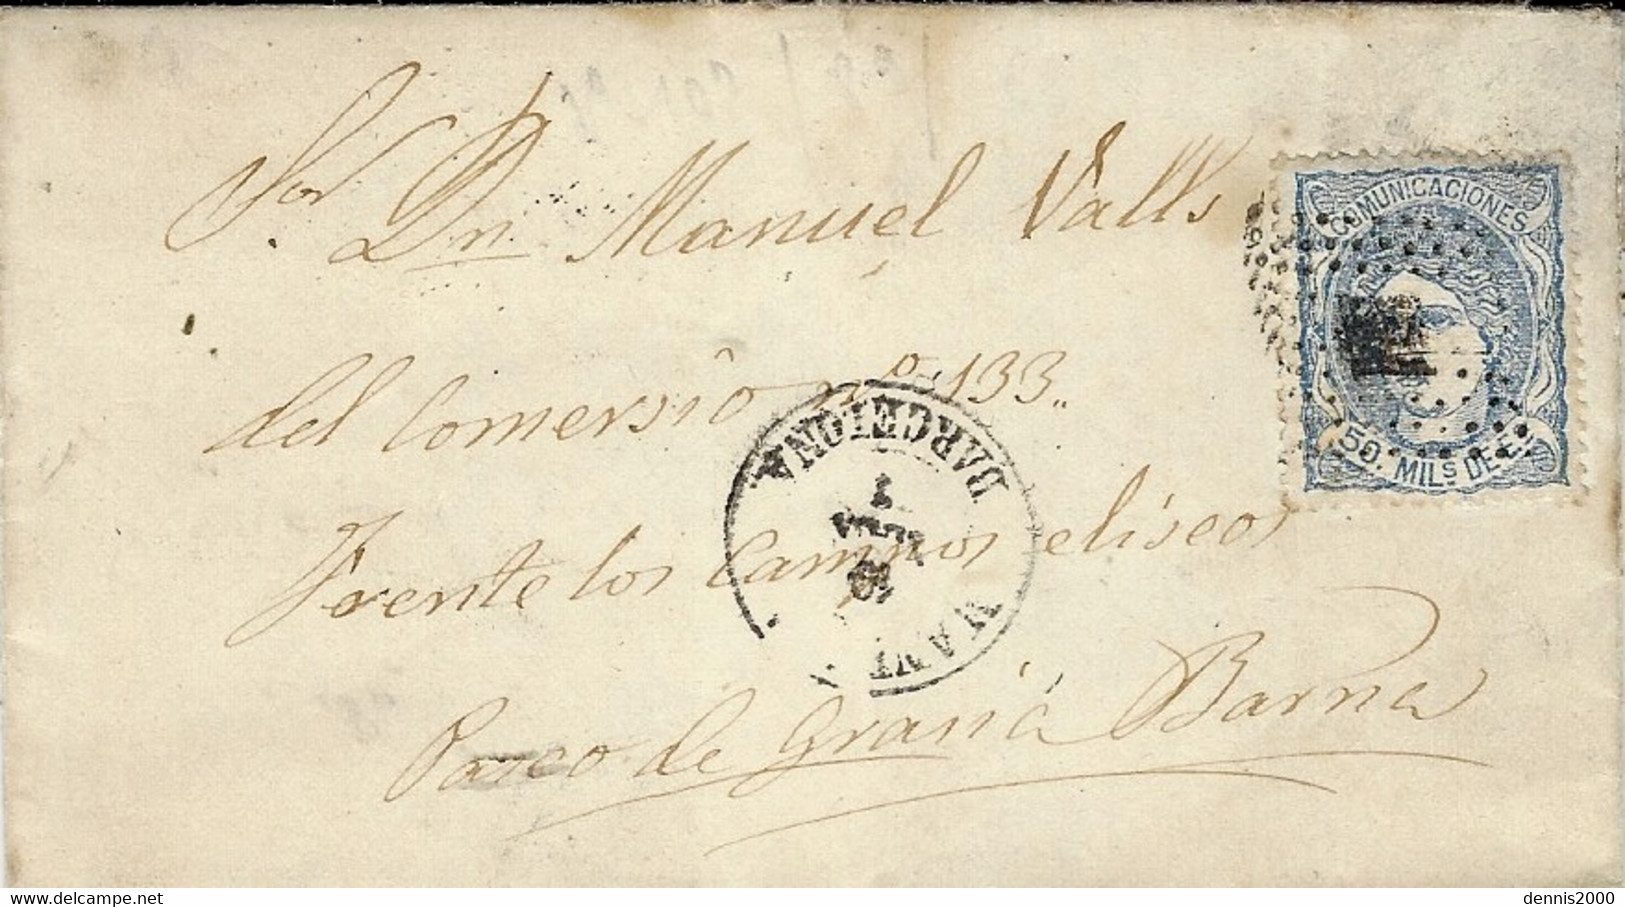 Sor Dn. Manuel Valls
del Comersio nº 133„
Frente los Campos eliseos
Paseo de Grasia Barna
COMUNICACIONES
50. MILS DE E.
BARCELONA
dennis2000